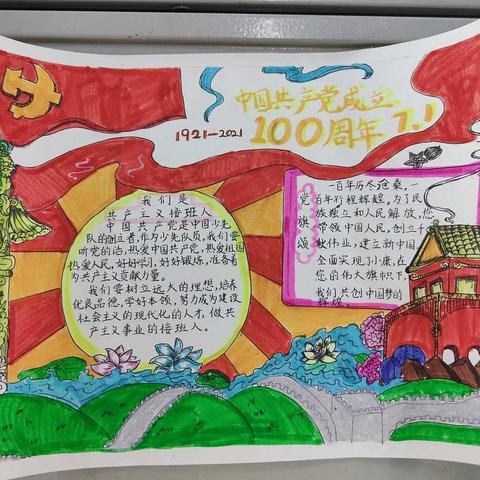 中国共产党成立
100周年 7.1
1921-2021
我们是
共产主义接班人
中国共产党是中国少先
队的创立者,作为少先队员,我们要
听党的话,热爱中国共产党,热爱祖国
热爱人民,好好学习,好好锻炼,准备着
为共产主义贡献力量。
我们要树立远大的理想,培养
优良品德,学好本领,努力成为建设
社会主义的现代化的人才,做共
产主义事业的接班人。
党旗颂
一百年历尽沧桑,一
百年行程辉煌,为了民
族独立和人民解放,您
带领中国人民,创立十
数伟业,建立新中国,
全面实现小康,在
您的伟大旗帜下,
我们共创中国梦的
辉煌。